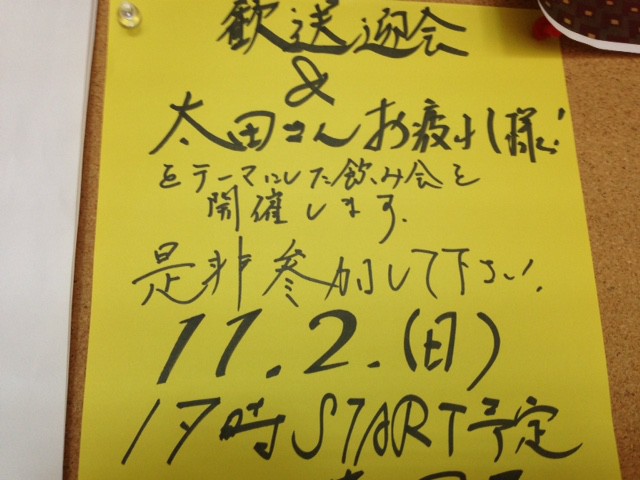 歓送迎会
&
太田さんお疲れし様!
をテーマにした飲み会を
開催します.
是非参加して下さい.
11.2.(日)
17時START予定